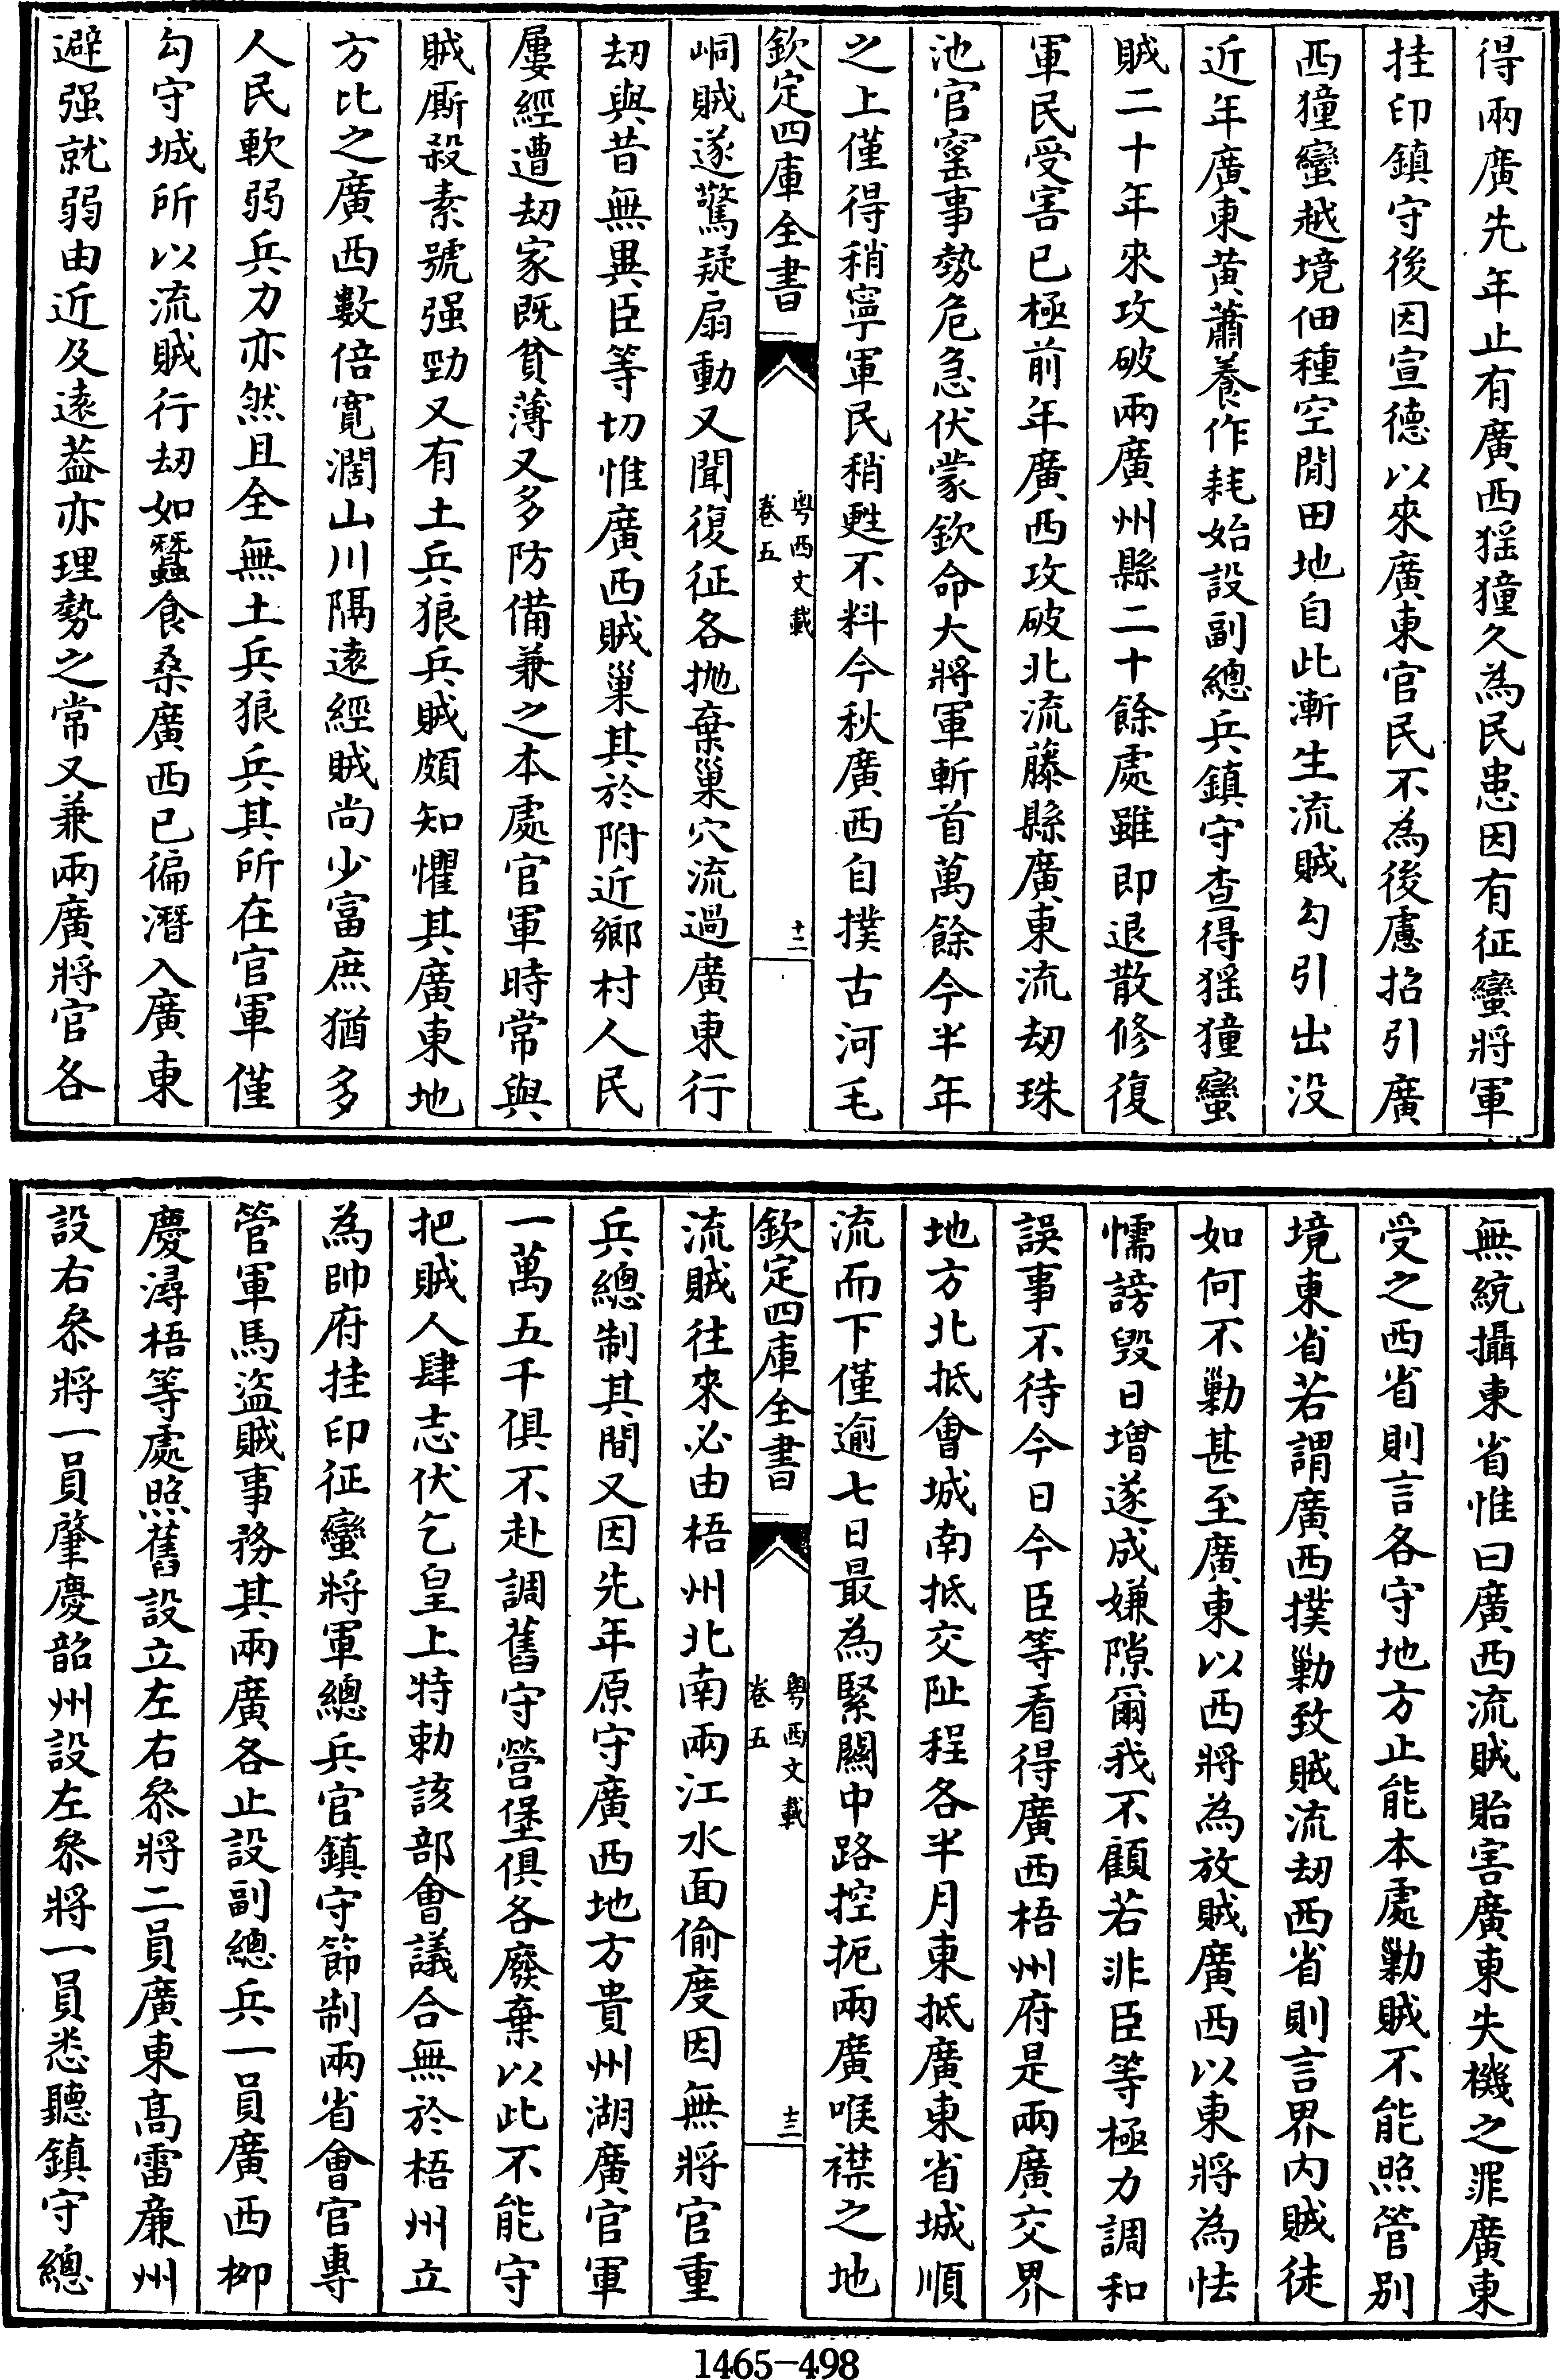 得兩廣先年止有廣西猺獞久為民患因有征蠻將軍
挂印鎮守後因宣德以來廣東官民不為後慮招引廣
西獞蠻越境佃種空閒田地自此漸生流賊勾引出没
近年廣東黄蕭養作耗始設副總兵鎮守查得猺獞蠻
賊二十年來攻破兩廣州縣二十餘處雖即退散修復
軍民受害已極前年廣西攻破北流藤縣廣東流刼珠
池官窰事勢危急伏蒙欽命大將軍斬首萬餘今半年
之上僅得稍寧軍民稍甦不料今秋廣西自撲古河毛
欽定四庫全書
粤西文載
卷五
十二
峒賊遂驚疑扇動又聞復征各抛棄巢穴流過廣東行
刼與昔無異臣等切惟廣西賊巢其於附近鄉村人民
屢經遭刼家既貧薄又多防備兼之本處官軍時常與
賊厮殺素號强勁又有土兵狼兵賊頗知懼其廣東地
方比之廣西數倍寛濶山川隔遠經賊尚少富庶猶多
人民軟弱兵力亦然且全無土兵狼兵其所在官軍僅
勾守城所以流賊行刼如蠶食桑廣西已徧潛入廣東
避强就弱由近及遠葢亦理勢之常又兼兩廣將官各
無統攝東省惟曰廣西流賊貽害廣東失機之罪廣東
受之西省則言各守地方止能本處勦賊不能照管别
境東省若謂廣西撲勦致賊流刼西省則言界内賊徒
如何不勦甚至廣東以西將為放賊廣西以東將為怯
懦謗毁日增遂成嫌隙爾我不顧若非臣等極力調和
誤事不待今日今臣等看得廣西梧州府是兩廣交界
地方北抵會城南抵交阯程各半月東抵廣東省城順
流而下僅逾七日最為緊關中路控扼兩廣喉襟之地
欽定四庫全書
粤西文載
卷五
十三
流賊往來必由梧州北南兩江水面偷度因無將官重
兵總制其間又因先年原守廣西地方貴州湖廣官軍
一萬五千俱不赴調舊守營堡俱各廢棄以此不能守
把賊人肆志伏乞皇上特勅該部會議合無於梧州立
為帥府挂印征蠻將軍總兵官鎮守節制兩省會官專
管軍馬盜賊事務其兩廣各止設副總兵一員廣西柳
慶潯梧等處照舊設立左右叅將二員廣東高雷亷州
設右叅將一員肇慶韶州設左叅將一員悉聽鎮守總
1465-498